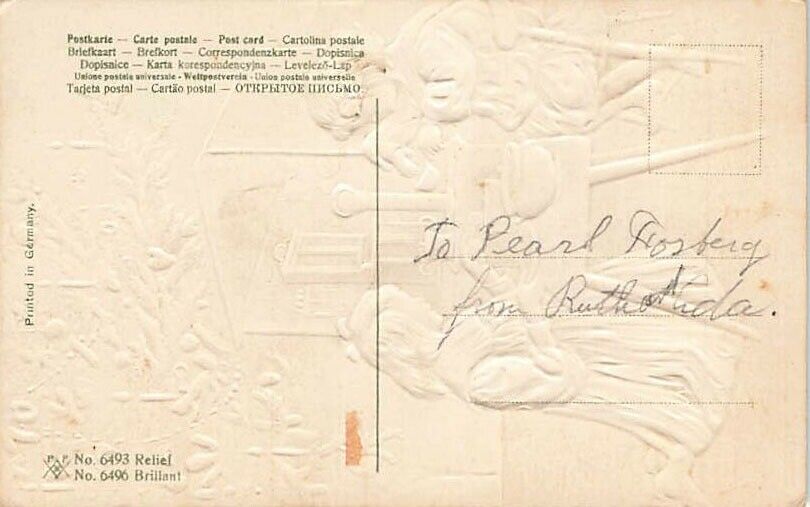 Postkarte — Carte postale — Post card — Cartolina postale
Briefkaart — Brefkort — Correspondenzkarte — Dopisnica
Dopisnice — Karta korespondencyjna — Levelező-Lap
Unione postale universale - Weltpostverein - Union postale universelle
Tarjeta postal — Cartão postal — ОТКРЫТОЕ ПИСЬМО.
Printed in Germany.
To Pearl Fosberg
from Ruth Nida.
P. P.
No. 6493 Relief
No. 6496 Brillant